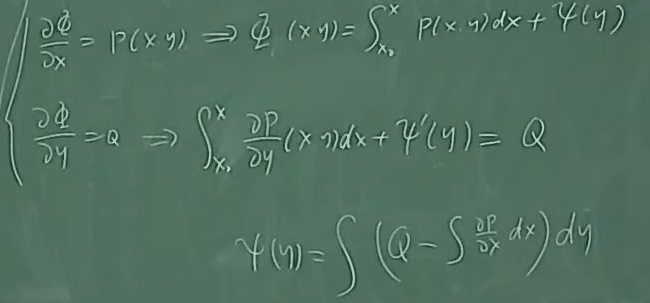 ∂Φ/∂x = P(x y) ⇒ Φ(x y) = ∫_{x₀}^{x} P(x, y)dx + Ψ(y)
∂Φ/∂y = Q ⇒ ∫_{x₀}^{x} ∂P/∂y (x y)dx + Ψ'(y) = Q
Ψ(y) = ∫ (Q − ∫ ∂P/∂x dx) dy